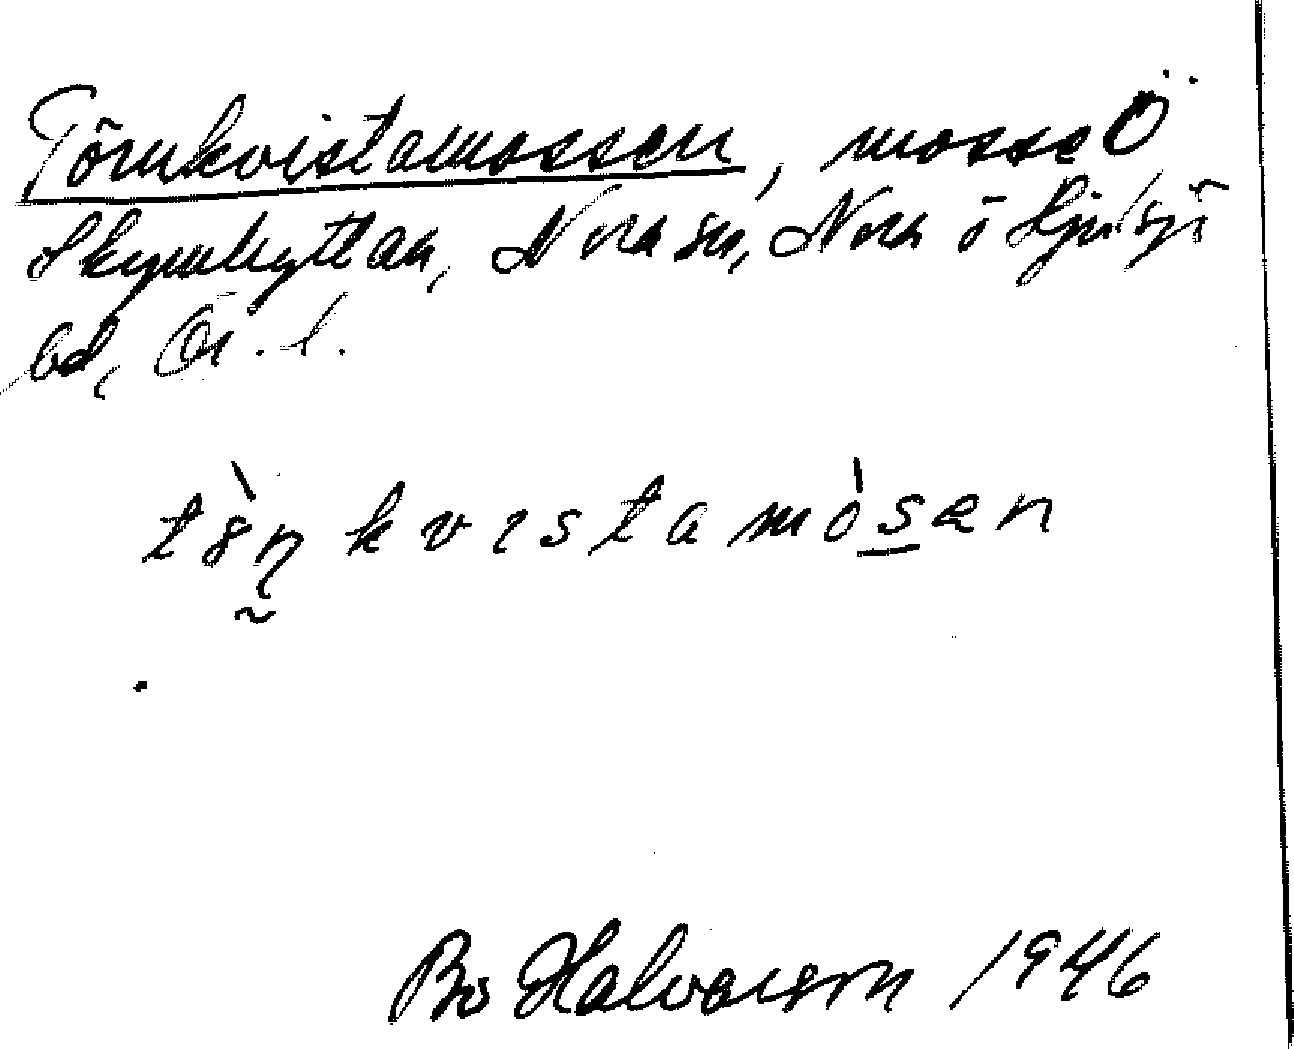 Törnkvistamossen, mosse Ö
Skymhyttan, Nora sn, Nora o Hjulsjö
bd, Ör. l.
tö̀ɳkvɪstamòsen
Bo Halvarson 1946